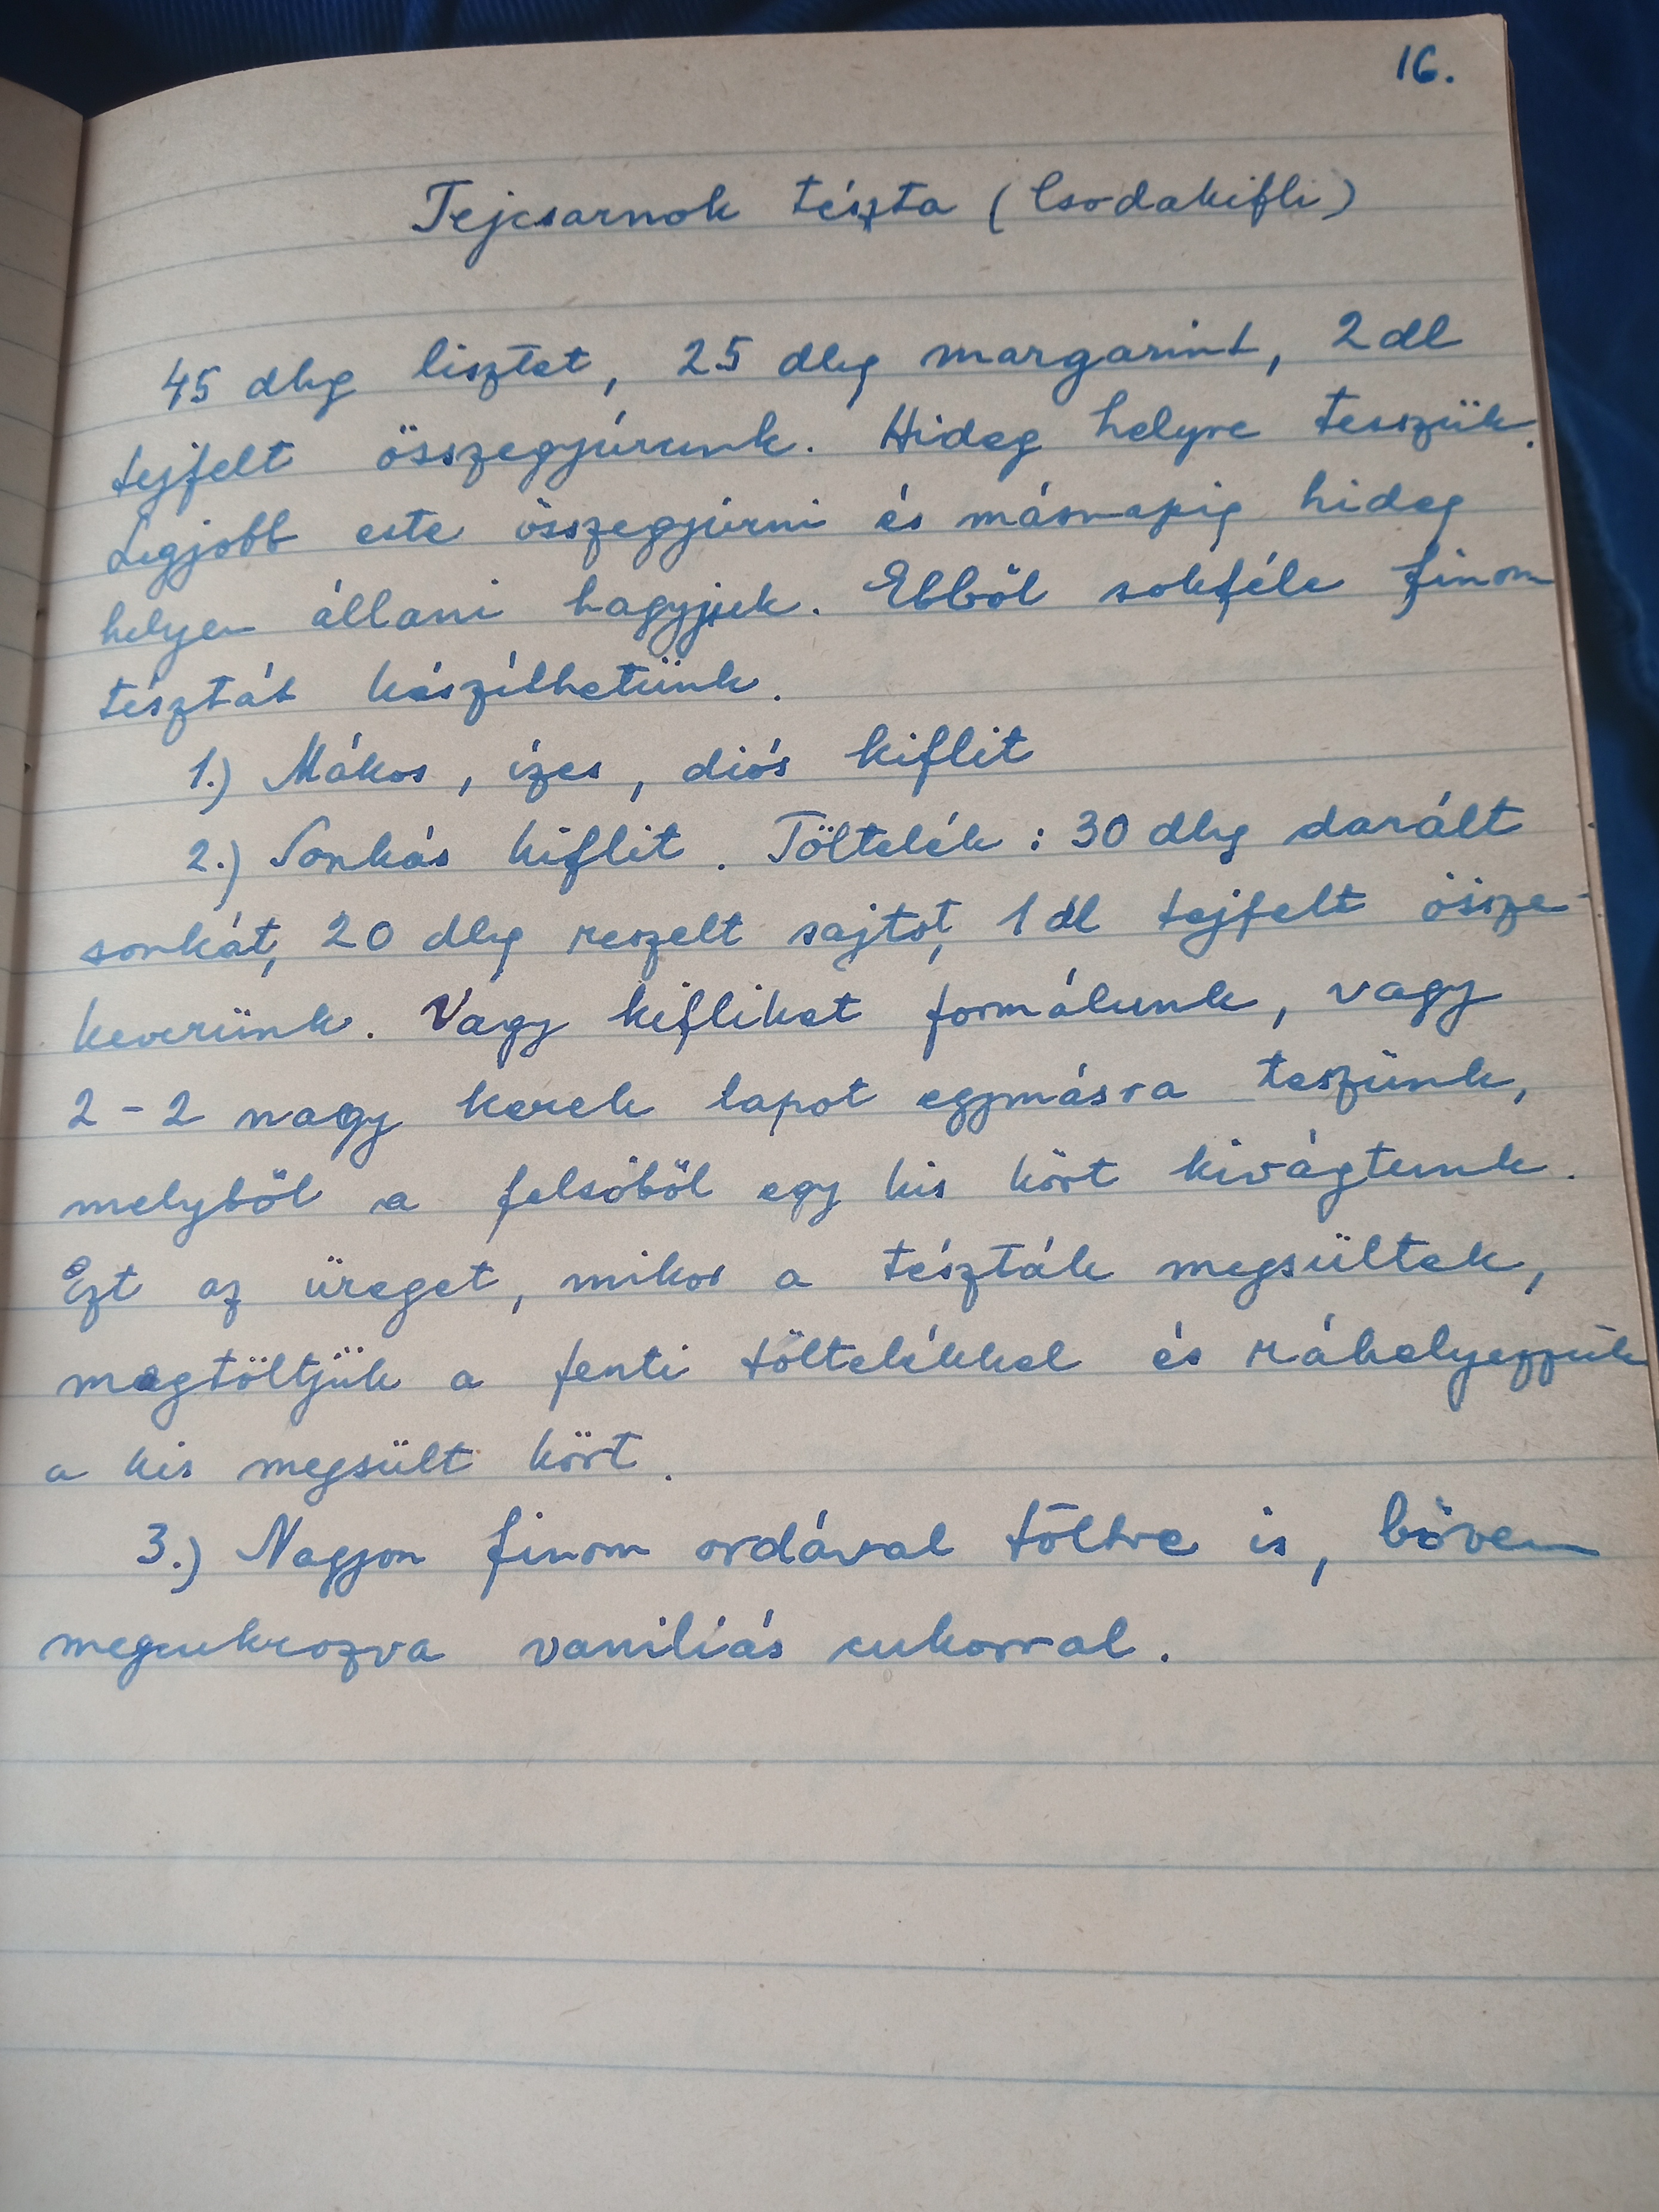 16.
Tejcsarnok tészta (Csodakifli)
45 dkg lisztet, 25 dkg margarint, 2 dl
tejfelt összegyúrunk. Hideg helyre tesszük.
Legjobb este összegyúrni és másnapig hideg
helyen állani hagyjuk. Ebből sokféle finom
tésztát készíthetünk.
1.) Mákos, ízes, diós kiflit
2.) Sonkás kiflit. Töltelék: 30 dkg darált
sonkát, 20 dkg reszelt sajtot, 1 dl tejfelt össze-
keverünk. Vagy kifliket formálunk, vagy
2-2 nagy kerek lapot egymásra teszünk,
melyből a felsőből egy kis kört kivágtunk.
Ezt az üreget, mikor a tészták megsültek,
megtöltjük a fenti töltelékkel és ráhelyezzük
a kis megsült kört.
3.) Nagyon finom ordával töltve is, bőven
megcukrozva vaniliás cukorral.